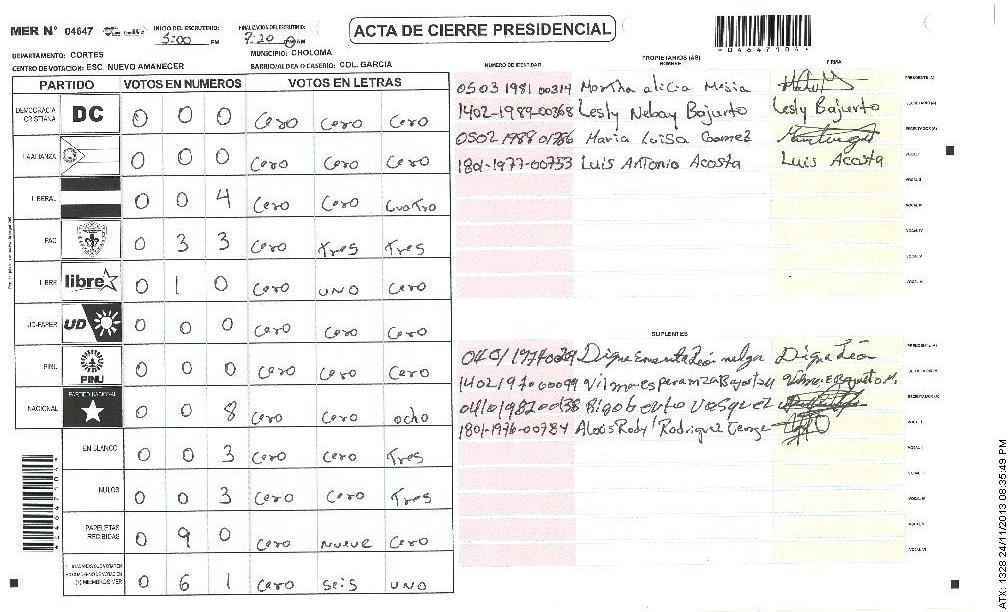 MER N° 04647
INICIO DEL ESCRUTINIO: 5:00 PM
FINALIZACION DEL ESCRUTINIO: 7:20 AM
ACTA DE CIERRE PRESIDENCIAL
04647104
DEPARTAMENTO: CORTES
MUNICIPIO: CHOLOMA
CENTRO DE VOTACION: ESC. NUEVO AMANECER
BARRIO/ALDEA O CASERIO: COL. GARCIA
PARTIDO VOTOS EN NUMEROS VOTOS EN LETRAS
DEMOCRACIA CRISTIANA DC 0 0 0 Cero Cero Cero
LA ALIANZA 0 0 0 Cero Cero Cero
LIBERAL 0 0 4 Cero Cero Cuatro
PAC 0 3 3 Cero Tres Tres
LIBRE libre 0 1 0 Cero UNO Cero
UD-FAPER UD 0 0 0 Cero Cero Cero
PINU PINU 0 0 0 Cero Cero Cero
NACIONAL PARTIDO NACIONAL 0 0 8 Cero Cero ocho
EN BLANCO 0 0 3 Cero Cero Tres
NULOS 0 0 3 Cero Cero Tres
PAPELETAS RECIBIDAS 0 9 0 Cero Nueve Cero
0 6 1 Cero Seis UNO
NUMERO DE IDENTIDAD
PROPIETARIOS (AS)
NOMBRE
FIRMA
0503 1981 00314 Martha alicia Mejia
PRESIDENTE (A)
1402-1989-00368 Lesly Nebay Bajurto Lesly Bajurto
SECRETARIO (A)
0502 1988 01786 Maria Luisa Gomez
ESCRUTADOR (A)
1801-1977-00753 Luis Antonio Acosta Luis Acosta
VOCAL I
VOCAL II
VOCAL III
VOCAL IV
VOCAL V
VOCAL VI
SUPLENTES
Digna León
PRESIDENTE (A)
SECRETARIO (A)
Rigoberto Vasquez
ESCRUTADOR (A)
1801-1976-00784 Rody Rodriguez
VOCAL I
VOCAL II
VOCAL III
VOCAL IV
VOCAL V
VOCAL VI
ATX: 1328 24/11/2013 08:35:49 PM